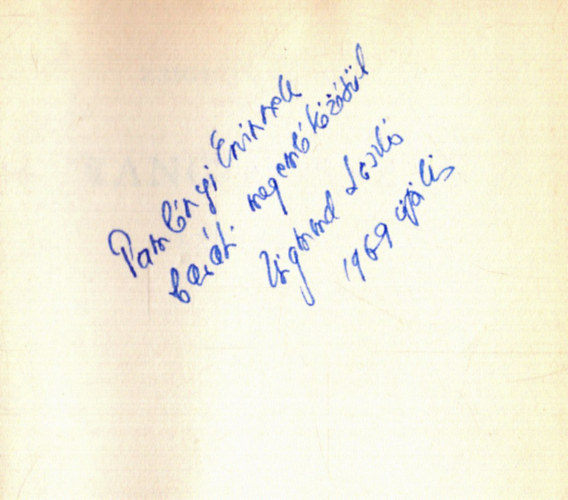 Pamlényi Ervinnek
baráti megemlékezésül
Zsigmond László
1969 április